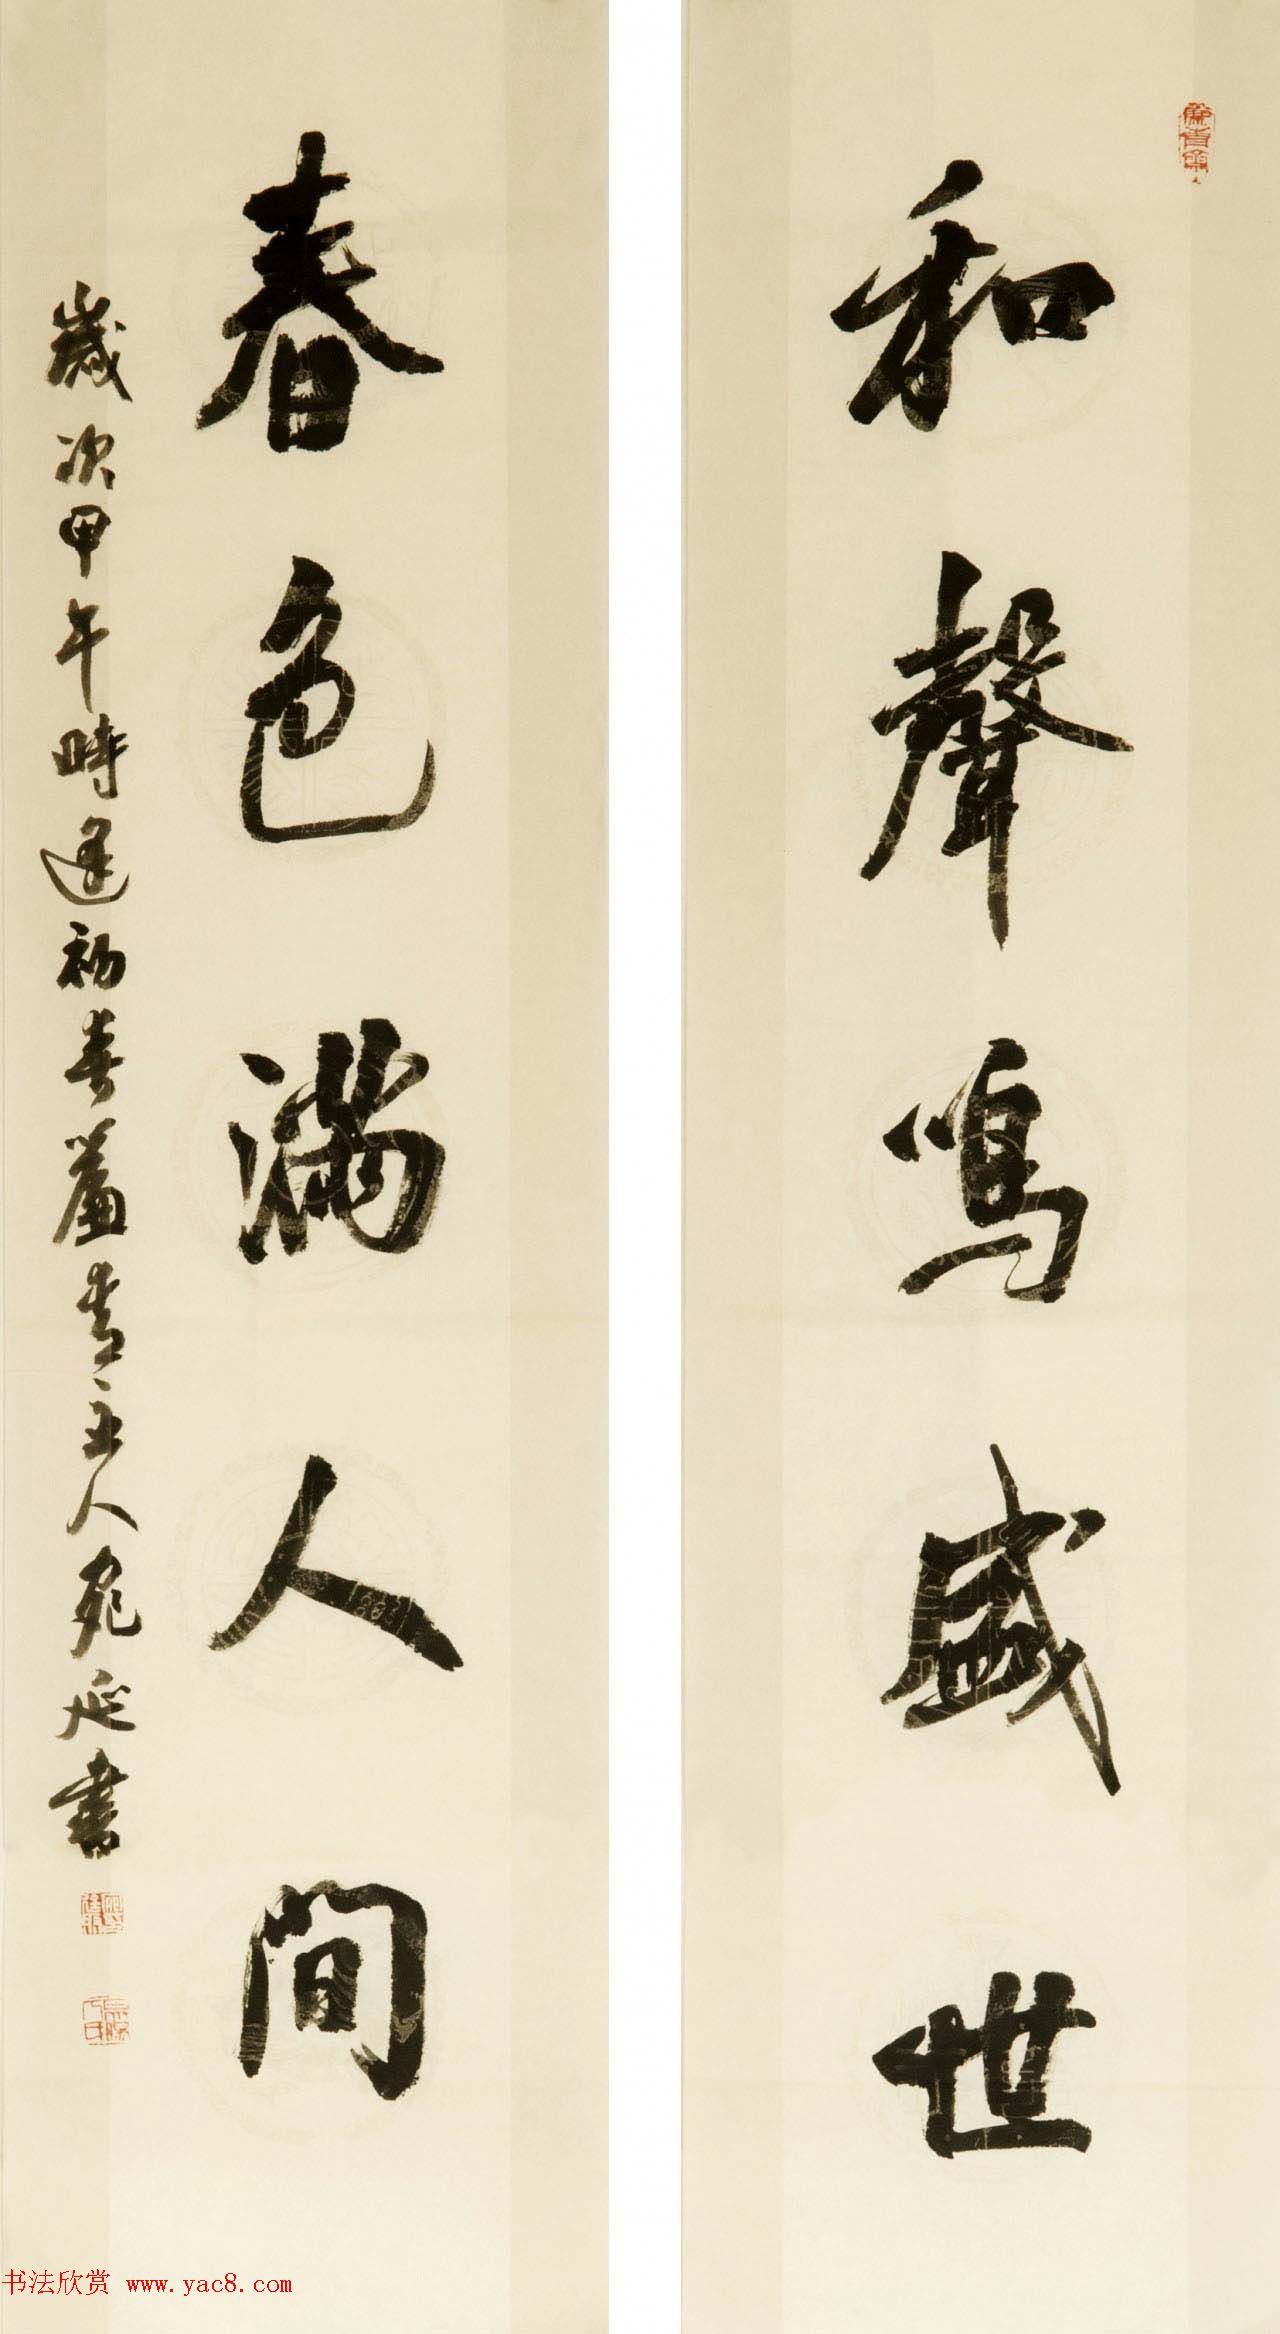 和聲鳴盛世
春色滿人間
歲次甲午時逢初春簾青主人宛延書
书法欣赏 www.yac8.com